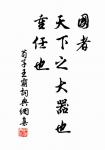 國者
天下之大器也
重任也
荀子王霸詞典網集